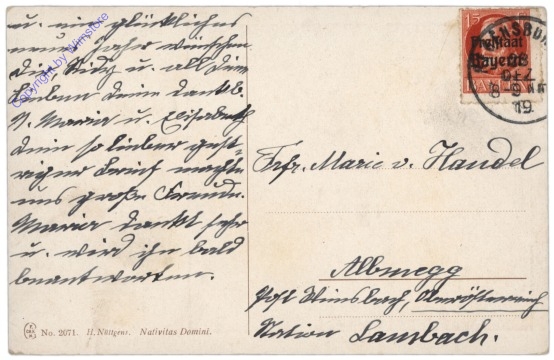 u. ein glückliches
neues Jahr wünschen
Dir Sidy u. all die
Lieben Deine dankb.
N. Maria u. Elisabeth
Dein so lieber gest-
riger Brief machte
uns große Freude.
Maria dankt sehr
u. wird ihn bald
beantworten.
Copyright by Wimstore
15
Freistaat
Bayern
DEZ
8-9
19
Frfr. Marie v. Handel
Almegg
Post Wimsbach, Oberösterreich
Station Lambach.
No. 2071. H. Nüttgens. Nativitas Domini.